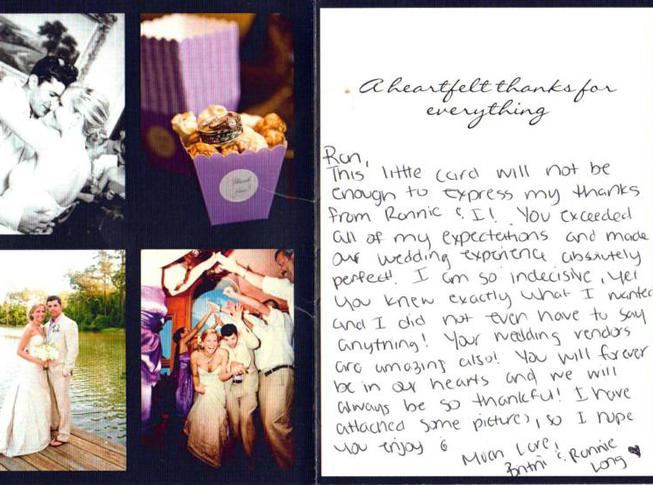 A heartfelt thanks for
everything
Ron,
This little card will not be
enough to express my thanks
from Ronnie & I! You exceeded
all of my expectations and made
our wedding experience absolutely
perfect! I am so indecisive, yet
you knew exactly what I wanted
and I did not even have to say
anything! Your wedding vendors
are amazing also! You will forever
be in our hearts and we will
always be so thankful! I have
attached some pictures, so I hope
you enjoy
Much Love,
& Ronnie
Long